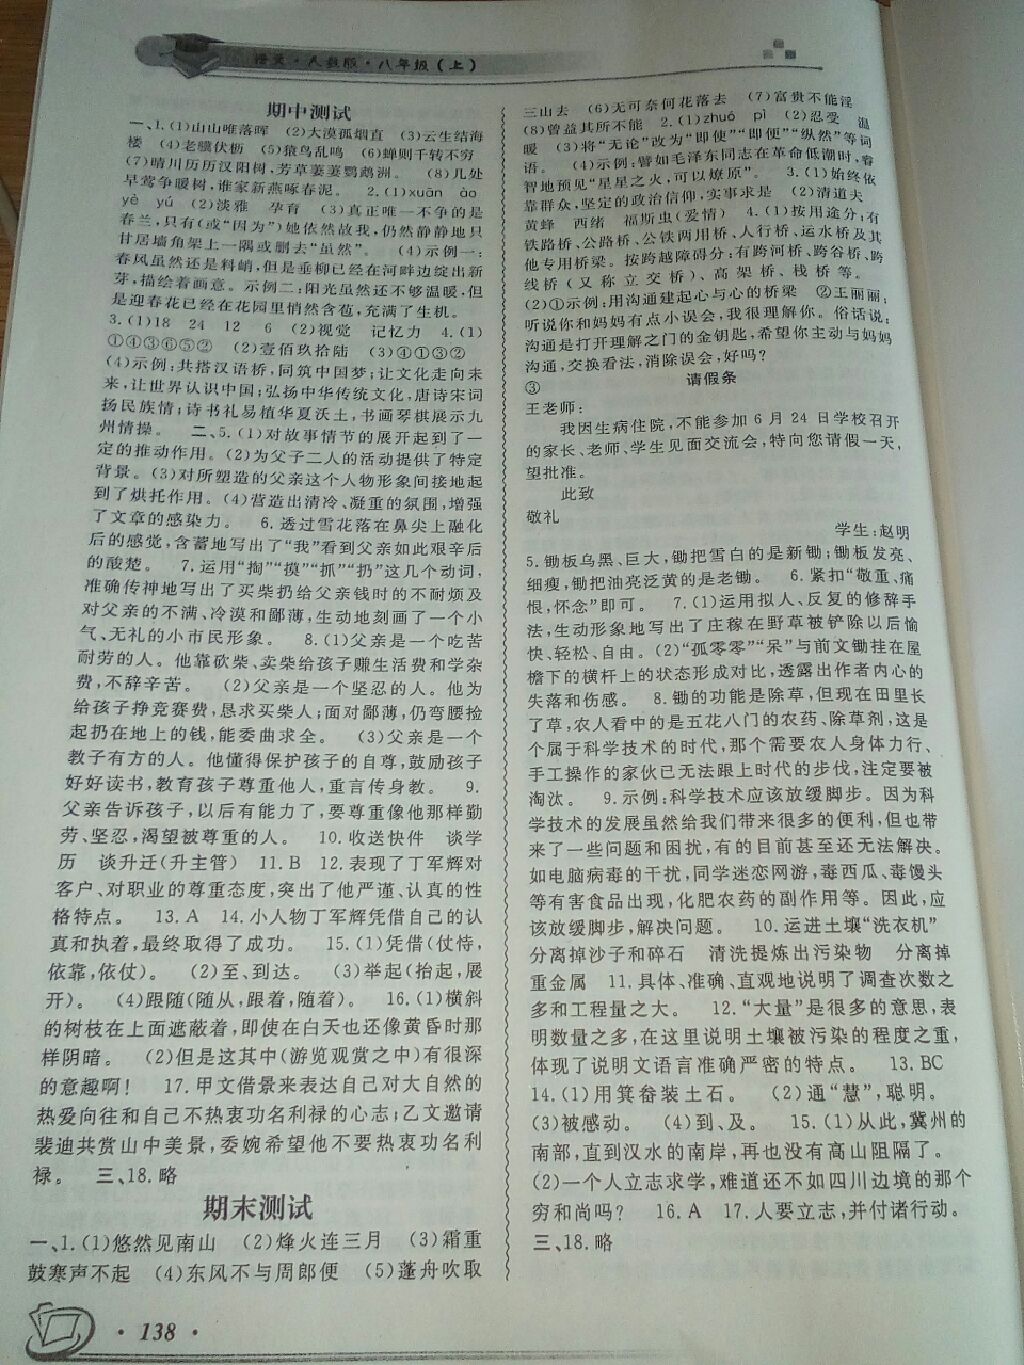 语文·人教版·八年级(上)
期中测试
一、1.(1)山山唯落晖 (2)大漠孤烟直 (3)云生结海
楼 (4)老骥伏枥 (5)猿鸟乱鸣 (6)蝉则千转不穷
(7)晴川历历汉阳树,芳草萋萋鹦鹉洲。 (8)几处
早莺争暖树,谁家新燕啄春泥。 2.(1)xuān ào
yè yú (2)淡雅 孕育 (3)真正唯一不争的是
春兰,只有(或“因为”)她依然故我,仍然静静地只
甘居墙角架上一隅或删去“虽然”。 (4)示例一:
春风虽然还是料峭,但是垂柳已经在河畔边绽出新
芽,描绘着画意。示例二:阳光虽然还不够温暖,但
是迎春花已经在花园里悄然含苞,充满了生机。
3.(1)18 24 12 6 (2)视觉 记忆力 4.(1)
①④③⑥⑤② (2)壹佰玖拾陆 (3)④①③②
(4)示例:共搭汉语桥,同筑中国梦;让文化走向未
来,让世界认识中国;弘扬中华传统文化,唐诗宋词
扬民族情;诗书礼易植华夏沃土,书画琴棋展示九
州情操。 二、5.(1)对故事情节的展开起到了一
定的推动作用。(2)为父子二人的活动提供了特定
背景。(3)对所塑造的父亲这个人物形象间接地起
到了烘托作用。(4)营造出清冷、凝重的氛围,增强
了文章的感染力。 6.透过雪花落在鼻尖上融化
后的感觉,含蓄地写出了“我”看到父亲如此艰辛后
的酸楚。 7.运用“掏”“摸”“抓”“扔”这几个动词,
准确传神地写出了买柴扔给父亲钱时的不耐烦及
对父亲的不满、冷漠和鄙薄,生动地刻画了一个小
气、无礼的小市民形象。 8.(1)父亲是一个吃苦
耐劳的人。他靠砍柴、卖柴给孩子赚生活费和学杂
费,不辞辛苦。 (2)父亲是一个坚忍的人。他为
给孩子挣竞赛费,恳求买柴人;面对鄙薄,仍弯腰捡
起扔在地上的钱,能委曲求全。 (3)父亲是一个
教子有方的人。他懂得保护孩子的自尊,鼓励孩子
好好读书,教育孩子尊重他人,重言传身教。 9.
父亲告诉孩子,以后有能力了,要尊重像他那样勤
劳、坚忍,渴望被尊重的人。 10.收送快件 谈学
历 谈升迁(升主管) 11.B 12.表现了丁军辉对
客户、对职业的尊重态度,突出了他严谨、认真的性
格特点。 13.A 14.小人物丁军辉凭借自己的认
真和执着,最终取得了成功。 15.(1)凭借(仗恃,
依靠,依仗)。 (2)至、到达。 (3)举起(抬起,展
开)。 (4)跟随(随从,跟着,随着)。 16.(1)横斜
的树枝在上面遮蔽着,即使在白天也还像黄昏时那
样阴暗。 (2)但是这其中(游览观赏之中)有很深
的意趣啊! 17.甲文借景来表达自己对大自然的
热爱向往和自己不热衷功名利禄的心志;乙文邀请
裴迪共赏山中美景,委婉希望他不要热衷功名利
禄。 三、18.略
期末测试
一、1.(1)悠然见南山 (2)烽火连三月 (3)霜重
鼓寒声不起 (4)东风不与周郎便 (5)蓬舟吹取
三山去 (6)无可奈何花落去 (7)富贵不能淫
(8)曾益其所不能 2.(1)zhuó pì (2)忍受 温
暖 (3)将“无论”改为“即使”“即便”“纵然”等词
语。 (4)示例:譬如毛泽东同志在革命低潮时,睿
智地预见“星星之火,可以燎原”。 3.(1)始终依
靠群众,坚定的政治信仰,实事求是 (2)清道夫
黄蜂 西绪 福斯虫(爱情) 4.(1)按用途分:有
铁路桥、公路桥、公铁两用桥、人行桥、运水桥及其
他专用桥梁。按跨越障碍分:有跨河桥、跨谷桥、跨
线桥(又称立交桥)、高架桥、栈桥等。
(2)①示例:用沟通建起心与心的桥梁 ②王丽丽:
听说你和妈妈有点小误会,我很理解你。俗话说:
沟通是打开理解之门的金钥匙,希望你主动与妈妈
沟通,交换看法,消除误会,好吗?
③ 请假条
王老师:
我因生病住院,不能参加6月24日学校召开
的家长、老师、学生见面交流会,特向您请假一天,
望批准。
此致
敬礼
学生:赵明
5.锄板乌黑、巨大,锄把雪白的是新锄;锄板发亮、
细瘦,锄把油亮泛黄的是老锄。 6.紧扣“敬重、痛
恨,怀念”即可。 7.(1)运用拟人、反复的修辞手
法,生动形象地写出了庄稼在野草被铲除以后愉
快、轻松、自由。(2)“孤零零”“呆”与前文锄挂在屋
檐下的横杆上的状态形成对比,透露出作者内心的
失落和伤感。 8.锄的功能是除草,但现在田里长
了草,农人看中的是五花八门的农药、除草剂,这是
个属于科学技术的时代,那个需要农人身体力行、
手工操作的家伙已无法跟上时代的步伐,注定要被
淘汰。 9.示例:科学技术应该放缓脚步。因为科
学技术的发展虽然给我们带来很多的便利,但也带
来了一些问题和困扰,有的目前甚至还无法解决。
如电脑病毒的干扰,同学迷恋网游,毒西瓜、毒馒头
等有害食品出现,化肥农药的副作用等。因此,应
该放缓脚步,解决问题。 10.运进土壤“洗衣机”
分离掉沙子和碎石 清洗提炼出污染物 分离掉
重金属 11.具体、准确、直观地说明了调查次数之
多和工程量之大。 12.“大量”是很多的意思,表
明数量之多,在这里说明土壤被污染的程度之重,
体现了说明文语言准确严密的特点。 13.BC
14.(1)用箕畚装土石。 (2)通“慧”,聪明。
(3)被感动。 (4)到、及。 15.(1)从此,冀州的
南部,直到汉水的南岸,再也没有高山阻隔了。
(2)一个人立志求学,难道还不如四川边境的那个
穷和尚吗? 16.A 17.人要立志,并付诸行动。
三、18.略
·138·